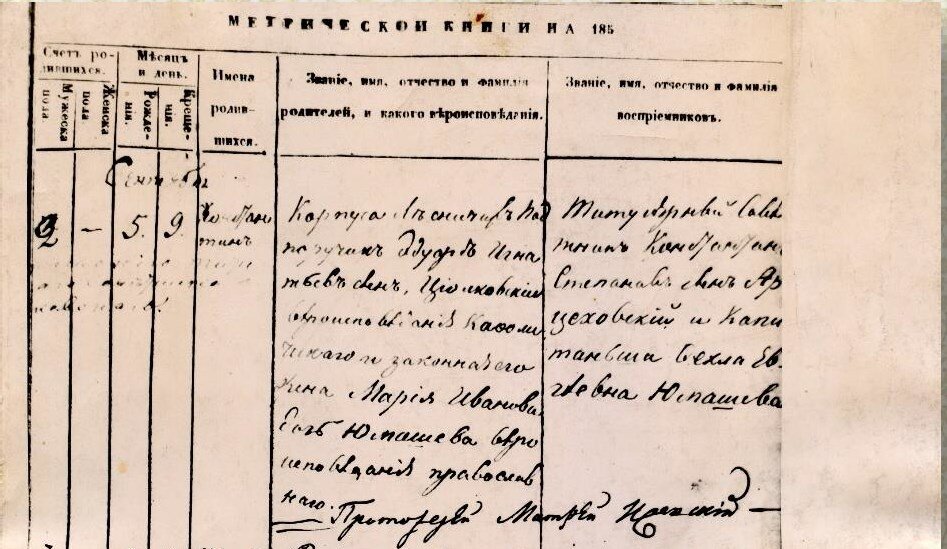 МЕТРИЧЕСКОЙ КНИГИ НА 185
Счетъ ро-
дившихся.
Мужеска
пола.
Женска
пола
Мѣсяцъ
и день.
Рожде-
нія.
Креще-
нія.
Имена
родив-
шихся.
Званіе, имя, отчество и фамилія
родителей, и какого вѣроисповѣданія.
Званіе, имя, отчество и фамилія
воспріемниковъ.
2
—
5.
9.
Констан
тинъ
Корпуса Лѣсничихъ Под
поручикъ Эдуардъ Игна
тьевъ сынъ, Ціолковскій
вѣроисповѣданія Католи
ческаго и законная его
жена Марія Иванова
Юмашева вѣро
исповѣданія православ
наго.
Титулярный Совѣ
тникъ Константин
Степановъ сынъ Ар
цеховскій и Капи
танша
Юмашева
Протоіерей